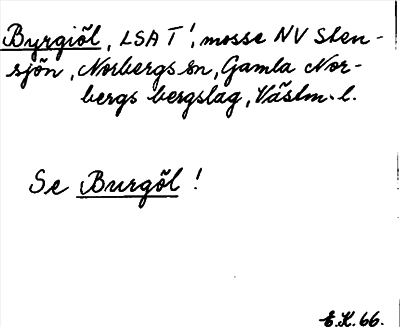 Byrgiõl, LSA T', mosse NV Sten-
sjön, Norbergs sn, Gamla Nor-
bergs bergslag, Västm. l.
Se Burgõl !
E.K. 66.